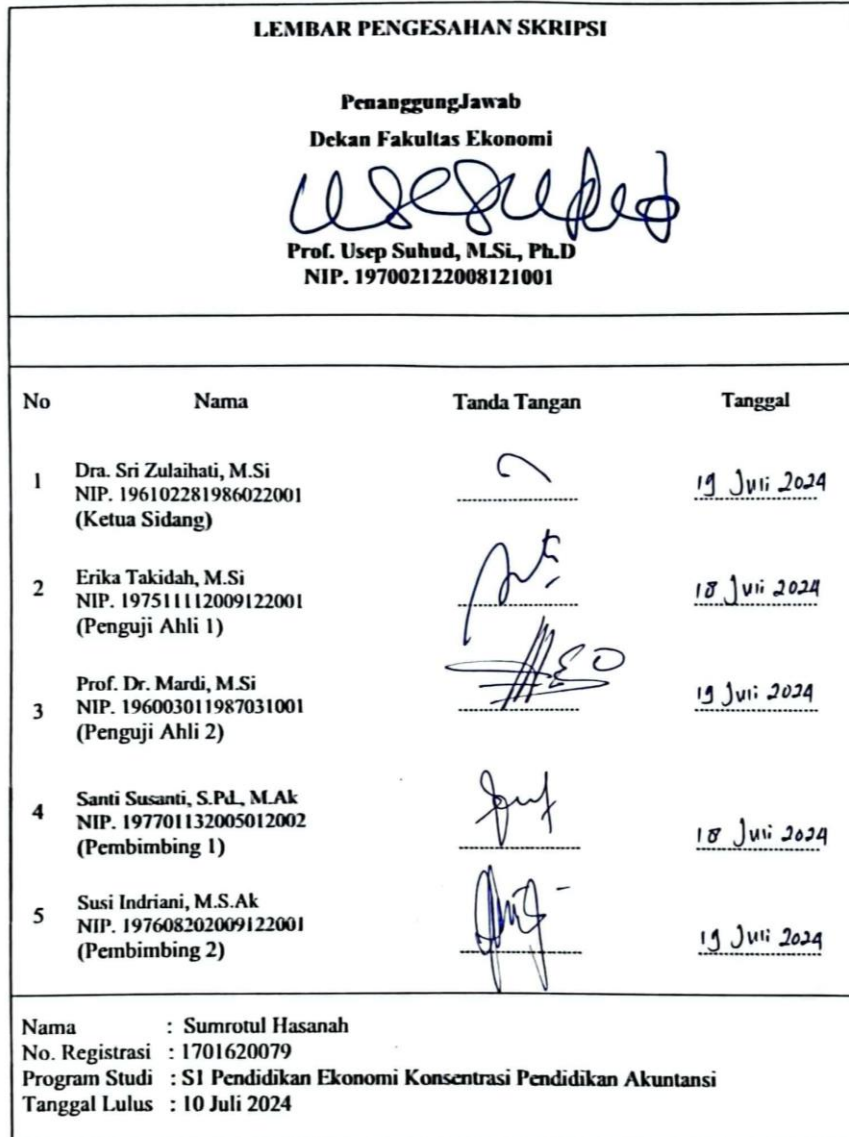 LEMBAR PENGESAHAN SKRIPSI
PenanggungJawab
Dekan Fakultas Ekonomi
Prof. Usep Suhud, M.Si., Ph.D
NIP. 197002122008121001
No Nama Tanda Tangan Tanggal
1 Dra. Sri Zulaihati, M.Si
NIP. 196102281986022001
(Ketua Sidang)
19 Juli 2024
2 Erika Takidah, M.Si
NIP. 197511112009122001
(Penguji Ahli 1)
18 Juli 2024
3 Prof. Dr. Mardi, M.Si
NIP. 196003011987031001
(Penguji Ahli 2)
19 Juli 2024
4 Santi Susanti, S.Pd., M.Ak
NIP. 197701132005012002
(Pembimbing 1)
18 Juli 2024
5 Susi Indriani, M.S.Ak
NIP. 197608202009122001
(Pembimbing 2)
19 Juli 2024
Nama : Sumrotul Hasanah
No. Registrasi : 1701620079
Program Studi : S1 Pendidikan Ekonomi Konsentrasi Pendidikan Akuntansi
Tanggal Lulus : 10 Juli 2024